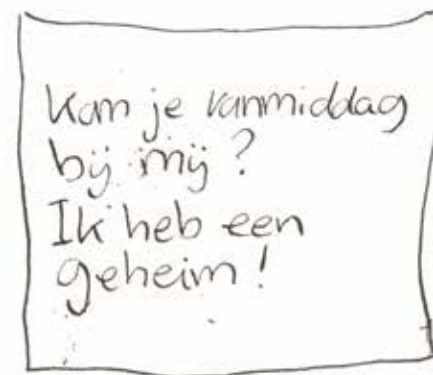 Kom je vanmiddag
bij mij?
Ik heb een
geheim!